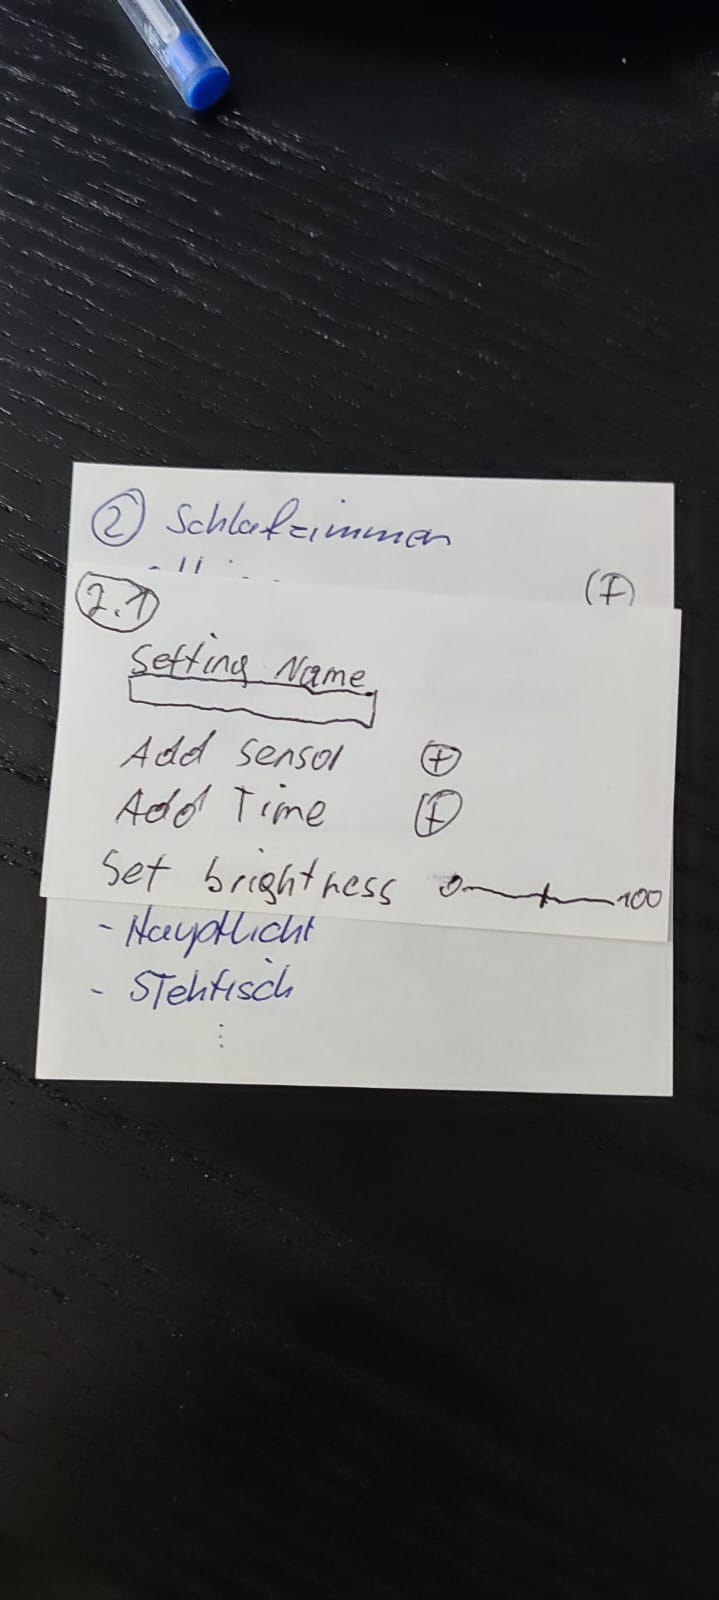 2 Schlafzimmer
+
2.1
Setting Name
Add Sensor +
Add Time +
Set brightness 0 100
- Hauptlicht
- Stehtisch
⋮